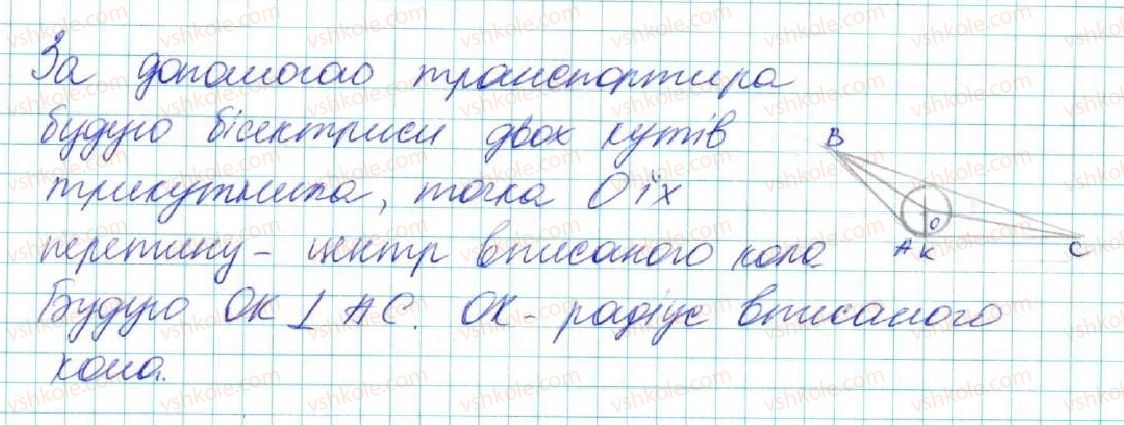 За допомогою транспортира
будую бісектриси двох кутів
трикутника, точка О їх
перетину – центр вписаного кола
Будую ОК ⊥ АС. ОК – радіус вписаного
кола.
B
O
A K C
vshkole.com